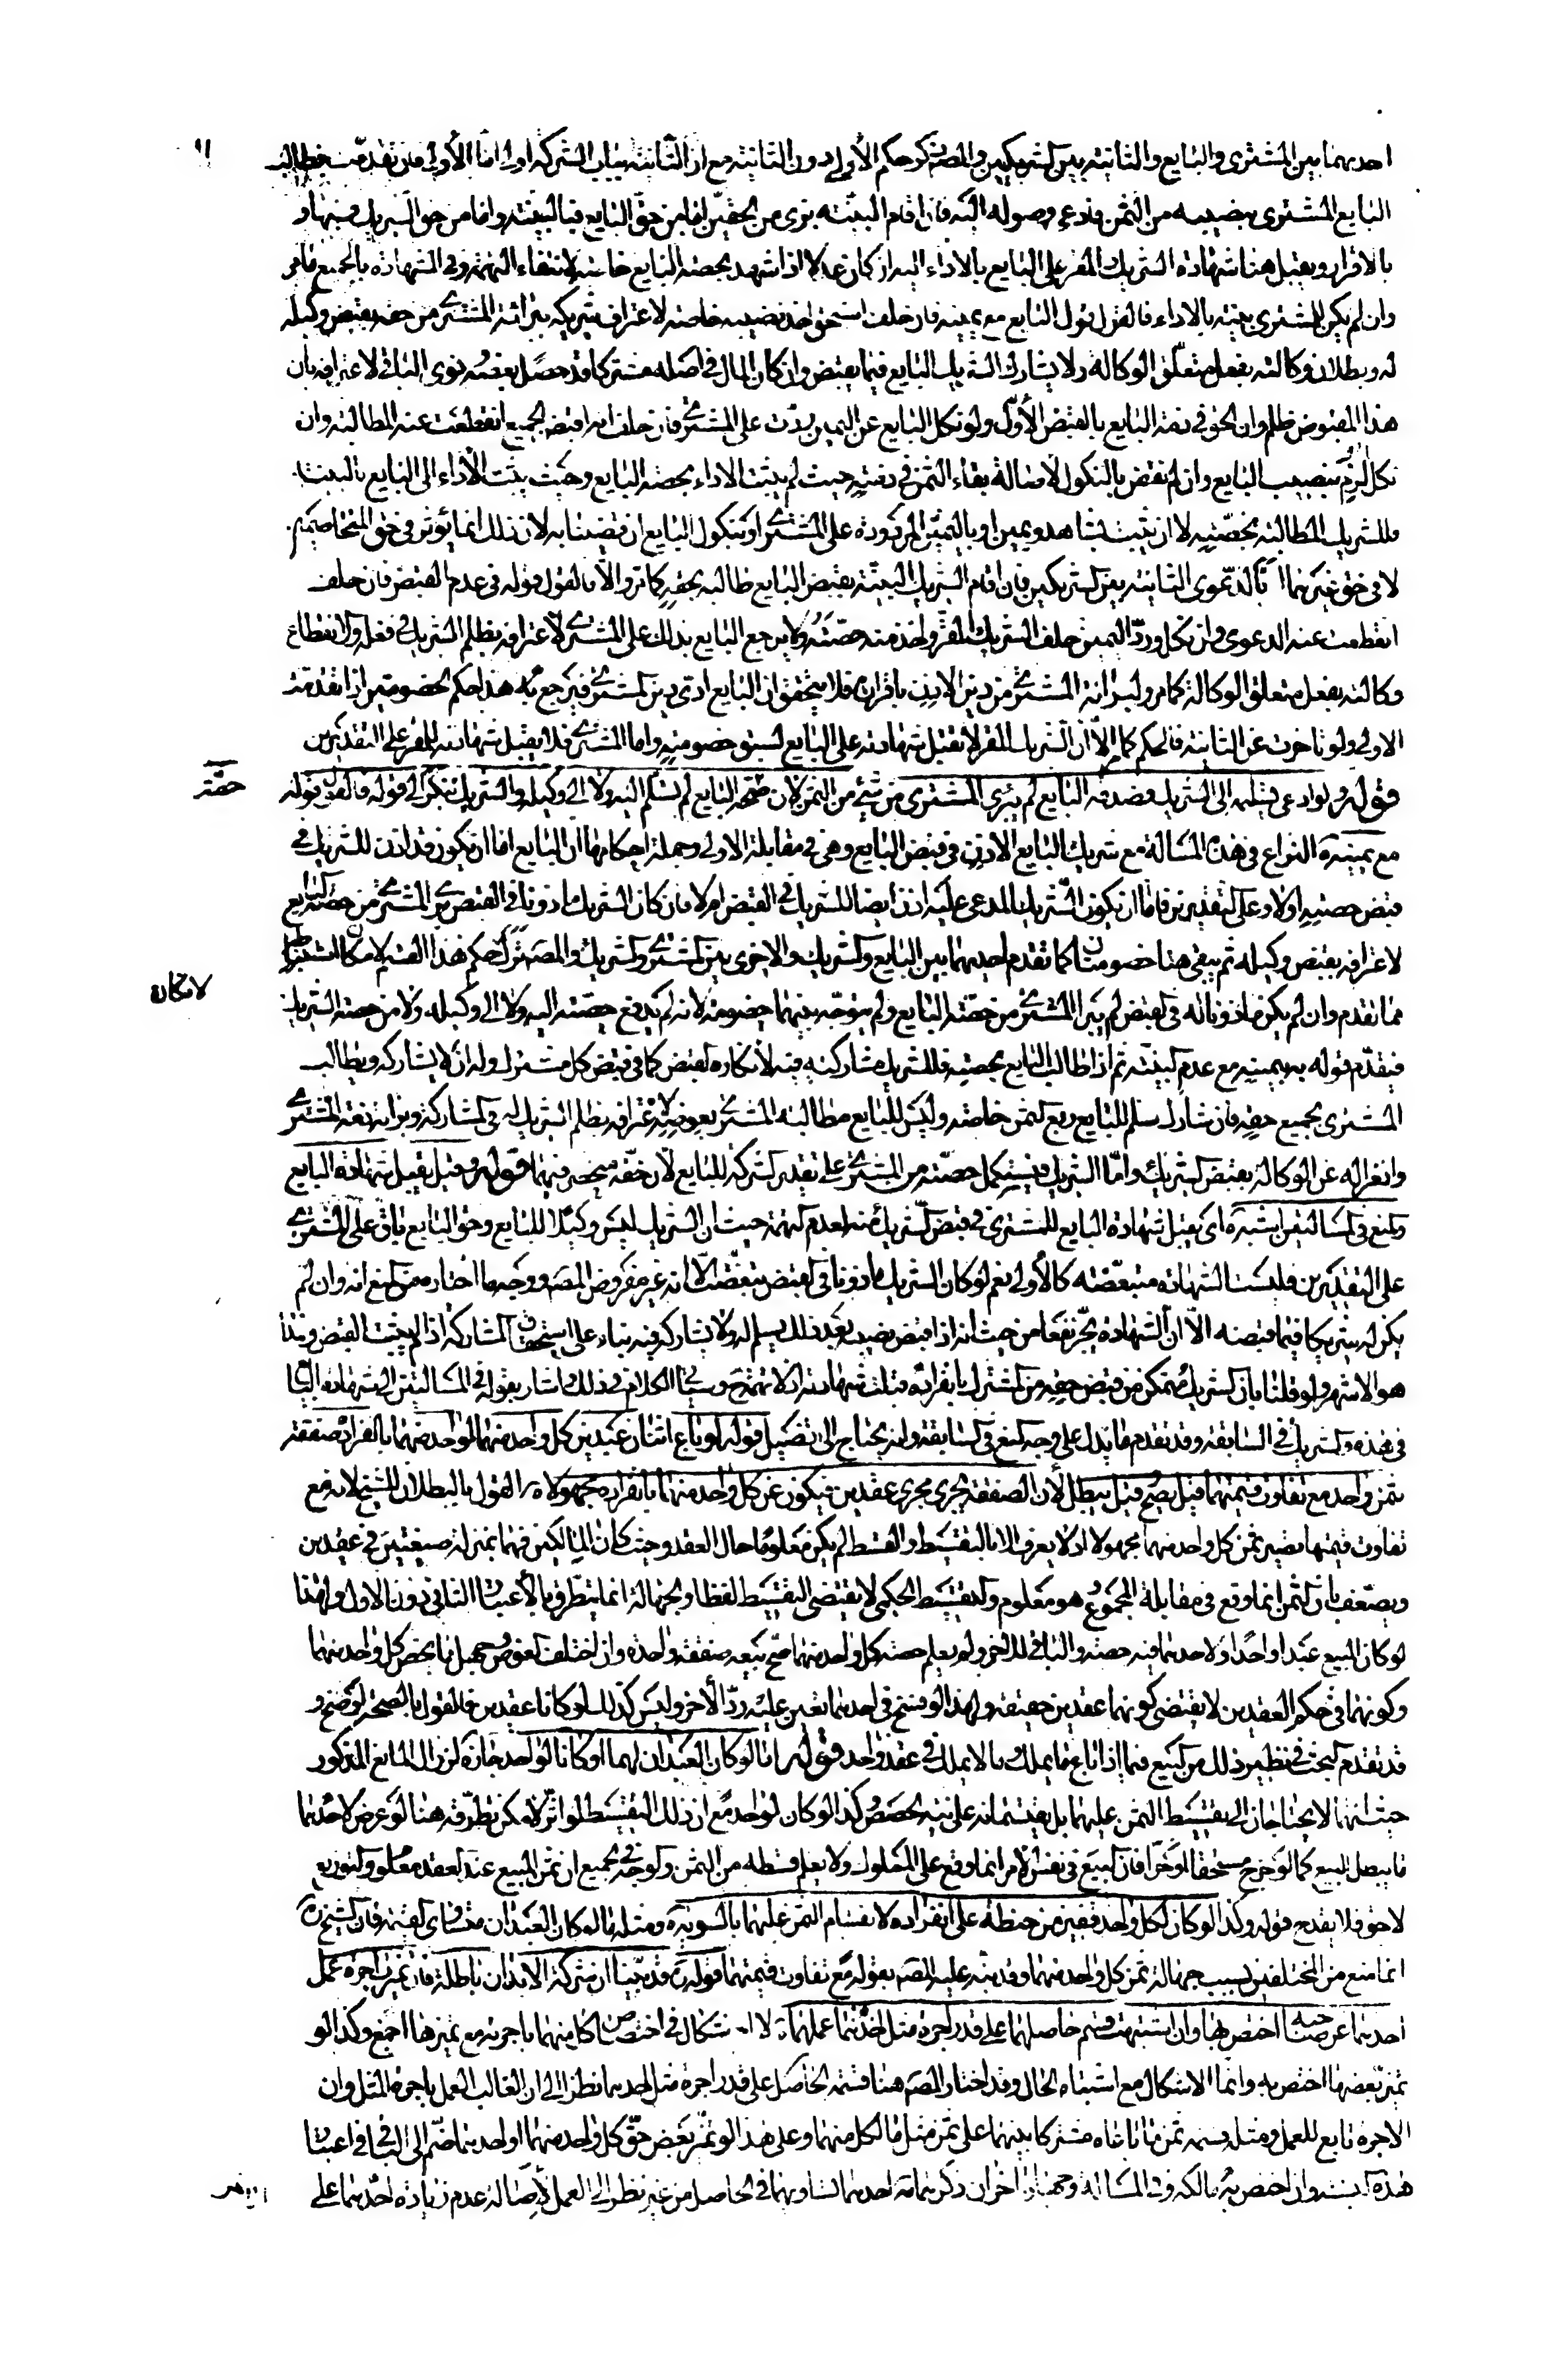 احديهما بين المشترى والبايع والثانية بين الشريكين والمص ذكر حكم الأولى دون الثانية مع ان الثانية بباب الشركة اولى اما الأولى فان تقدمت فطالب
البايع المشترى بنصيبه من الثمن فادعى وصوله اليه فان اقام البينة برئ من الحقين اما من حق البايع فبالبينة واما من حق الشريك فبها او
بالاقرار ويقبل هنا شهادة الشريك المقر على البايع بالاداء اليه ان كان عدلا اذا شهد بحصة البايع خاصة لانتفاء التهمة وفى الشهادة بالجميع ما مر
وان لم يكن للمشترى بينة بالاداء فالقول قول البايع مع يمينه فان حلف استحق اخذ نصيبه خاصة لاعتراف شريكه ببرائة المشترى من حقه بقبض وكيله
له وبطلان وكالته بفعل متعلق الوكالة ولا يشارك الشريك البايع فيما يقبض وان كان المال فى اصله مشتركا قد حصل بعضه نوى الباقى لاعترافه بان
هذا المقبوض ظلم وان الحق فى ذمة البايع بالقبض الأول ولو نكل البايع عن اليمين ردت على المشترى فان حلف انه اقبضه الجميع انقطعت عنه المطالبة وان
نكل الزم بنصيب البايع وان لم نقض بالنكول لاصالة بقاء الثمن فى ذمته حيث لم يثبت الاداء بحصة البايع وحيث يثبت الأداء الى البايع بالبينة
فللشريك المطالبة بحصته لا ان يثبت بشاهد ويمين او باليمين المردودة على المشترى او بنكول البايع ان قضينا به لان ذلك انما يؤثر فى حق المتخاصمين
لا فى حق غيرهما الدعوى الثانية بين الشريكين فان اقام الشريك البينة بقبض البايع طالبه بحقه كما مر والا فالقول قوله فى عدم القبض فان حلف
انقطعت عنه الدعوى وان نكل او رد اليمين حلف الشريك المقر واخذ منه حصته ولا يرجع البايع بذلك على المشترى لاعترافه بظلم الشريك فى فعله ولانقطاع
وكالته بفعل متعلق الوكالة كما مر ولبرائة المشترى من دين الاذن باقراره فلا يتحقق ان البايع ادى دين المشترى فيرجع به هذا حكم الخصومتين اذا تقدمت
الاولى ولو تاخرت عن الثانية فالحكم كما مر الا ان الشريك المقر لا تقبل شهادته على البايع لسبق خصومته واما المشترى فلا يقبل شهادته للمقر على التقديرين
قوله ولو ادعى تسليمه الى الشريك فصدقه البايع لم يبرئ المشترى من شئ من الثمن لان حصة البايع لم تسلم اليه ولا الى وكيله والشريك ينكر الى قوله فالقول قوله
حصة
مع يمينه النزاع فى هذه المسالة مع شريك البايع الاذن فى قبض البايع وهى فى مقابلة الاولى وجملة احكامها ان البايع اما ان يكون قد اذن للشريك فى
قبض حصته او لا وعلى التقديرين فاما ان يكون الشريك المدعى عليه اذن ايضا للشريك فى القبض ام لا فان كان الشريك ماذونا فى القبض برئ المشترى من حصة البايع
لاعترافه بقبض وكيله ثم يبقى هنا خصومتان كما تقدم احديهما بين البايع والشريك والاخرى بين المشترى والشريك والمص ترك حكم هذا القسم لامكان استنباطه
لامكان
مما تقدم وان لم يكن ماذونا له فى القبض لم يبرئ المشترى من حصة البايع ولم يتوجه بينهما خصومة لانه لم يدفع حصته اليه ولا الى وكيله ولا من حصة الشريك
فيقدم قوله به بيمينه مع عدم البينة ثم اذا طالب البايع بحصته فللشريك مشاركته فيه لانكاره القبض كما فى قبض كل مشترك وله ان لا يشاركه ويطالب
المشترى بجميع حقه فان شارك سلم للبايع ربع الثمن خاصة وليس للبايع مطالبة المشترى بعوضه لاعترافه بظلم الشريك له فى المشاركة وبرائة ذمة المشترى
وانعزاله عن الوكالة بقبض الشريك واما الشريك فيستكمل حصته من المشترى على تقدير الشركة للبايع لان حقه منحصر فيهما قوله وقيل يقبل شهادة البايع
والمنع فى المسالتين اشبه اى يقبل شهادة البايع للمشترى فى قبض الشريك منه لعدم التهمة حيث ان الشريك ليس وكيلا للبايع وحق البايع باق على المشترى
على التقديرين فليست الشهادة متبعضة كالأولى نعم لو كان الشريك ماذونا فى القبض تبعضت الا انه غير مفروض المص ووجه ما اختاره من المنع انه وان لم
يكن له شريكا فيما قبضه الا ان الشهادة تجر نفعا من حيث انه اذا قبض نصيبه بعد ذلك يسلم له ولا يشاركه فيه بناء على استحقاق المشاركة اذا لم يثبت القبض وهذا
هو الاشهر ولو قلنا بان الشريك متمكن من قبض حقه من المشترك بانفراده قبلت شهادته اذ لا تهمة وسيجئ الكلام فى ذلك واشار بقوله فى المسالتين الى شهادة البايع
فى هذه والشريك فى السابقة وقد تقدم ما يدل على وجه المنع فى السابقة وانه يحتاج الى تفصيل قوله لو باع اثنان عبدين كل واحد منهما لواحد منهما بانفراده صفقة
بثمن واحد مع تفاوت قيمتهما قيل يصح وقيل يبطل لأن الصفقة تجرى مجرى عقدين فيكون ثمن كل واحد منهما بانفراده مجهولا القول بالبطلان للشيخ لانه مع
تفاوت قيمتهما يصير ثمن كل واحد منهما مجهولا اذ لا يعرف الا بالتقسيط والقسط لم يكن معلوما حال العقد وحيث كان المالكين فهما بمنزلة صيغتين فى عقدين
ويضعف بان الثمن انما وقع فى مقابلة المجموع وهو معلوم والتقسيط الحكمى لا يقتضى التقسيط لفظا والجهالة انما يتطرق بالاعتبار الثانى دون الاول ولهذا
لو كان المبيع عبدا واحدا ولاحدهما فيه حصة والباقى للاخر ولم يعلم حصة كل واحد منهما صح بيعه صفقة واحدة وان اختلف العوض وجهل ما يخص كل واحد منهما
وكونهما فى حكم العقدين لا يقتضى كونهما عقدين حقيقة ولهذا لو فسخ فى احدهما تعين عليه رد الأخر وليس كذلك لو كانا عقدين فالقول بالصحة اوضح و
قد تقدم البحث فى نظير ذلك من البيع فيما اذا باع ما يملك وما لا يملك فى عقد واحد قوله اما لو كان العبدان لهما او كانا لواحد جاز لزوال المانع المذكور
حيث انهما لا يحتاجان الى تقسيط الثمن عليهما بل يقتسمانه على نسبة الحصص وكذا لو كان لواحد مع ان ذلك التقسيط لو اثر لامكن تطرقه هنا لو عرض لاحدهما
ما يبطل البيع كما لو خرج مستحقا او حرا فان البيع فى نفس الامر انما وقع على المملوك ولا يعلم قسطه من الثمن والوجه فى الجميع ان ثمن المبيع عند العقد معلوم والتوزيع
لاحق فلا يقدح قوله وكذا لو كان لكل واحد قفيز من حنطة على انفراده لانقسام الثمن عليهما بالسوية ومثله ما لو كان العبدان متساوى القيمة فان الشيخ ره
انما منع من المختلفين بسبب جهالة ثمن كل واحد منهما وقد نبه عليه المص بقوله مع تفاوت قيمتهما قوله قد بينا ان شركة الابدان باطلة فان تميزت اجرة عمل
احدهما عن صاحبه اختص بها وان اشتبهت قسم حاصلهما على قدر اجرة مثل عملهما لا اشكال فى اختصاص كل منهما باجرته مع تميزها اجمع وكذا لو
تميز بعضها اختص به وانما الاشكال مع اشتباه الحال وقد اختار المص هنا قسمة الحاصل على قدر اجرة مثل احدهما نظرا الى ان الغالب العمل باجرة المثل وان
الاجرة تابع للعمل ومثله قسمة ثمن ما باعاه مشتركا بينهما على ثمن مثل ما لكل منهما وعلى هذا لو تميز بعض حق كل واحد منهما او احدهما ضم الى الباقى فى اعتبار
هذه النسبة وان اختص به مالكه وفى المسالة وجهان اخران ذكرهما احدهما تساويهما فى الحاصل من غير نظر الى العمل لأصالة عدم زيادة احدهما على